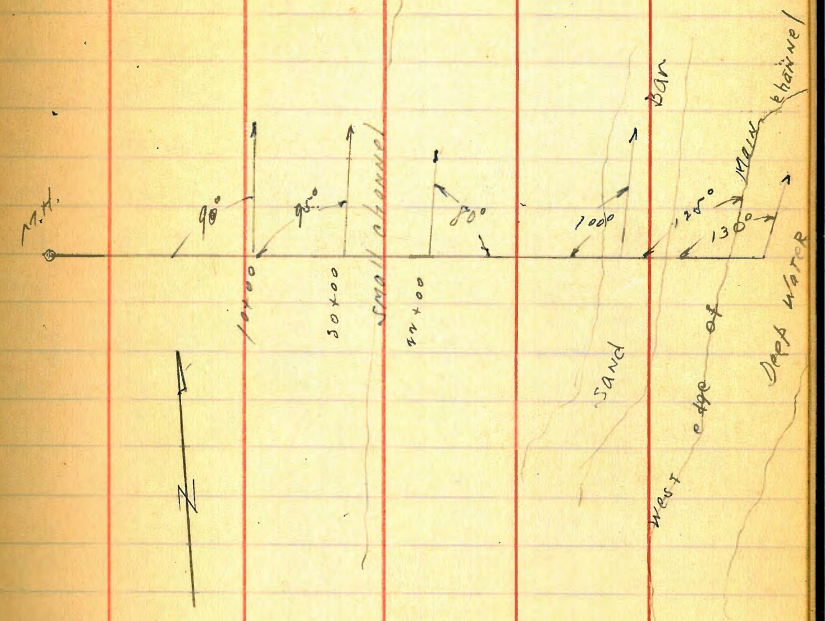 90°
90°
80°
1000
125°
130°
10+00
30+00
22+00
small channel
Sand Bar
West edge of Main channel
Deep Water
N